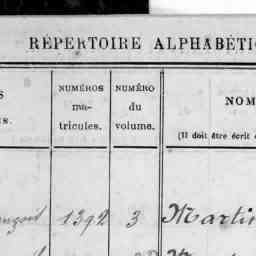 RÉPERTOIRE ALPHABÉTI
NUMÉROS
ma-
tricules.
NUMÉRO
du
volume.
NOM
(Il doit être écrit
1392
3
Martin